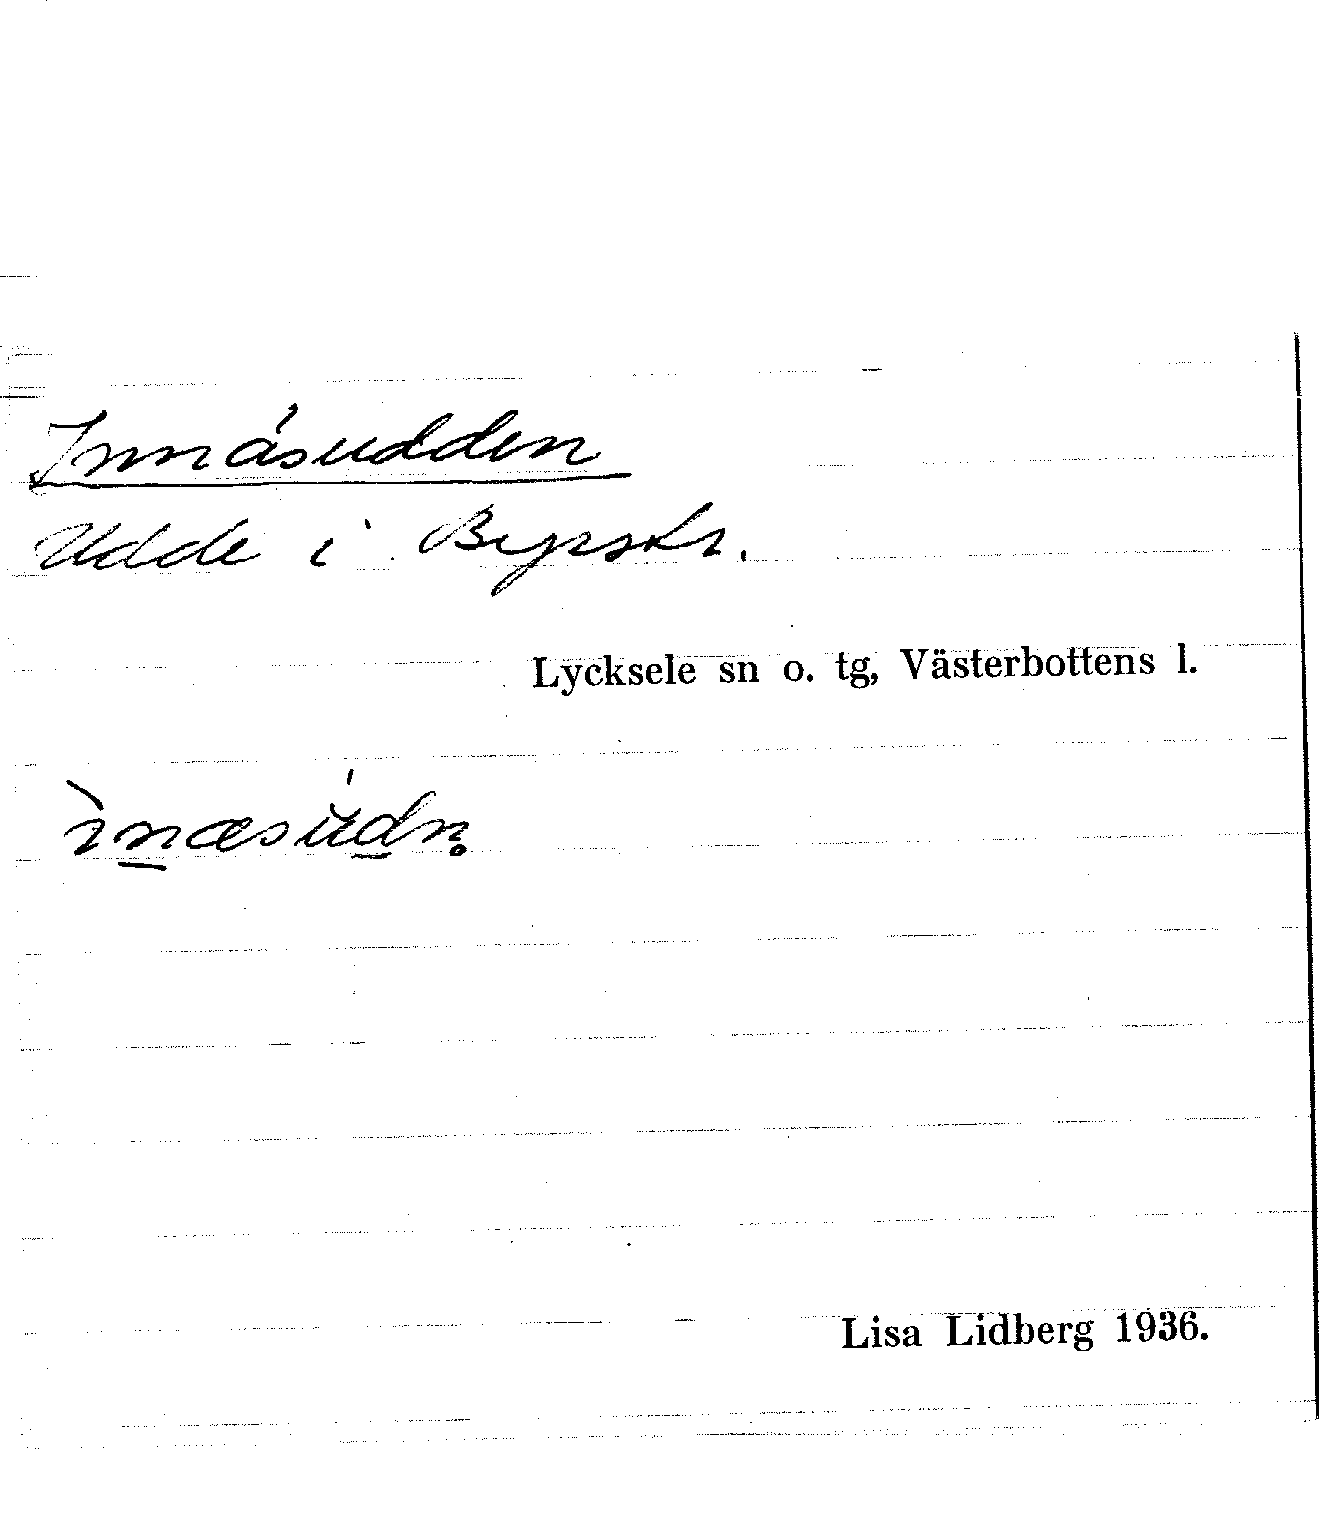 Innäsudden
Udde i Byrstr.
Lycksele sn o. tg, Västerbottens l.
Lisa Lidberg 1936.